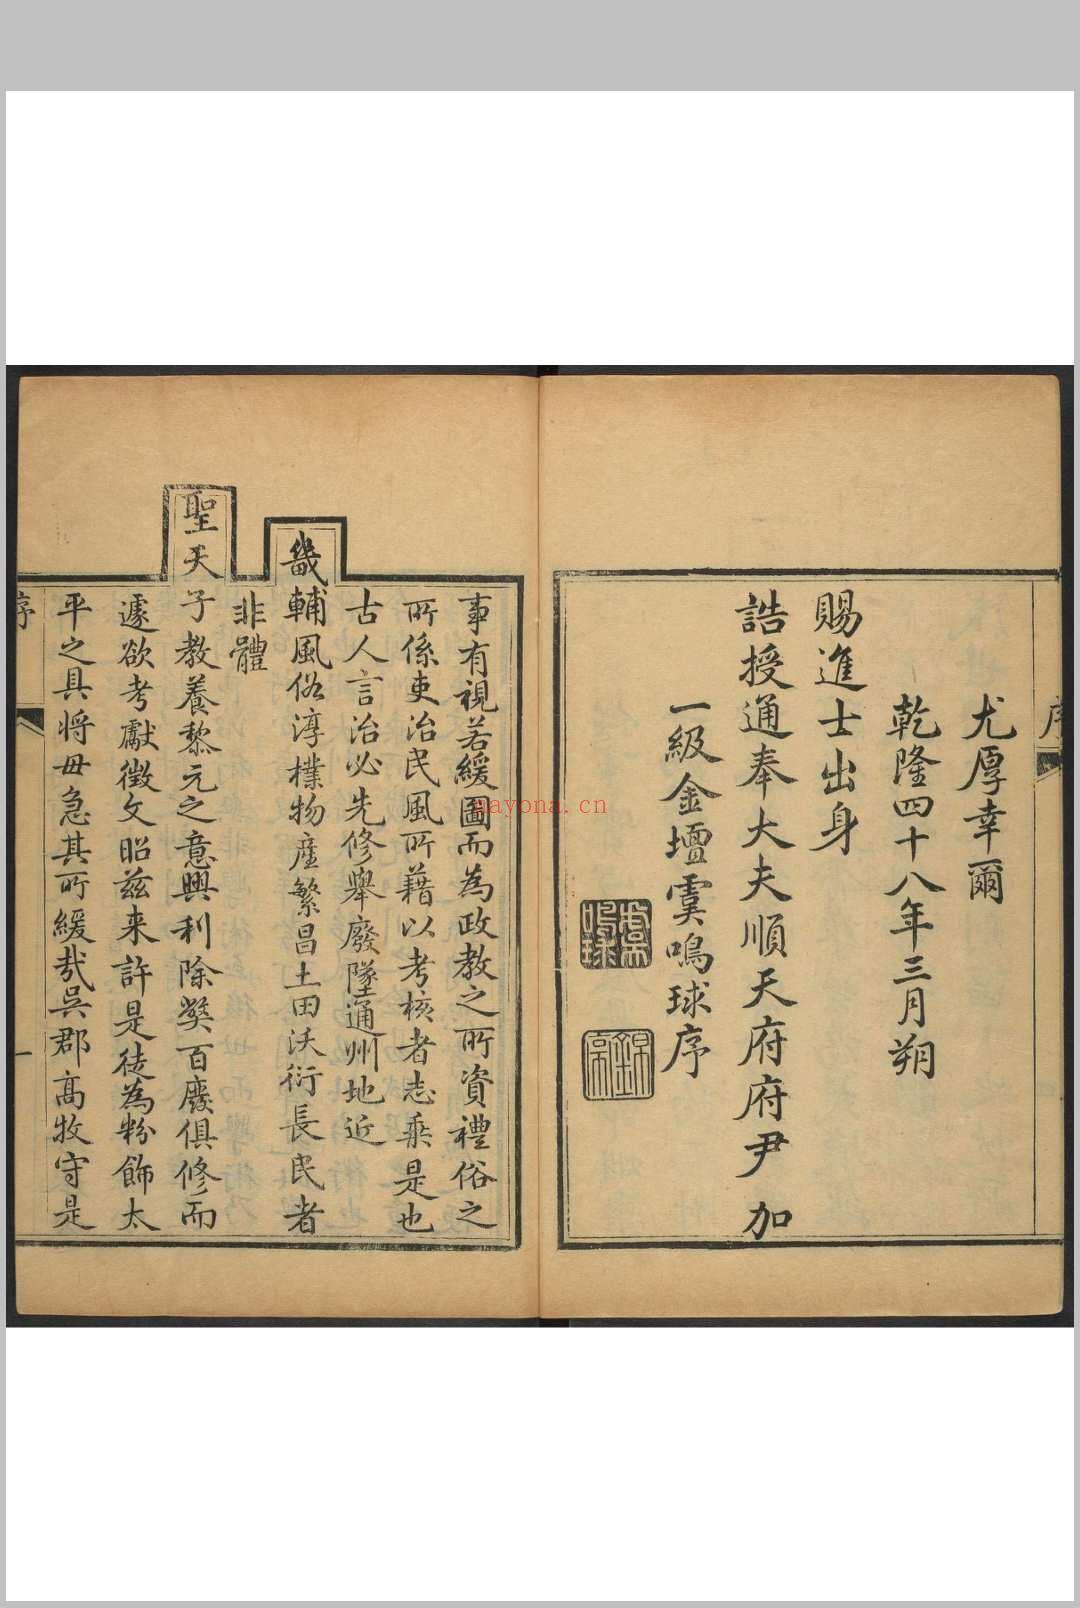 序
尤厚幸爾
乾隆四十八年三月朔
賜進士出身
誥授通奉大夫順天府府尹加
一級金壇虞鳴球序
虞鳴球
事有視若緩圖而為政教之所資禮俗之
所係吏治民風所藉以考核者志乘是也
古人言治必先修舉廢墜通州地近
畿輔風俗淳樸物產繁昌土田沃衍長民者
非體
聖天子教養黎元之意興利除獘百廢俱修而
遽欲考獻徵文昭茲来許是徒為粉飾太
平之具將毋急其所緩哉吳郡高牧守是
序
一
nayona.cn